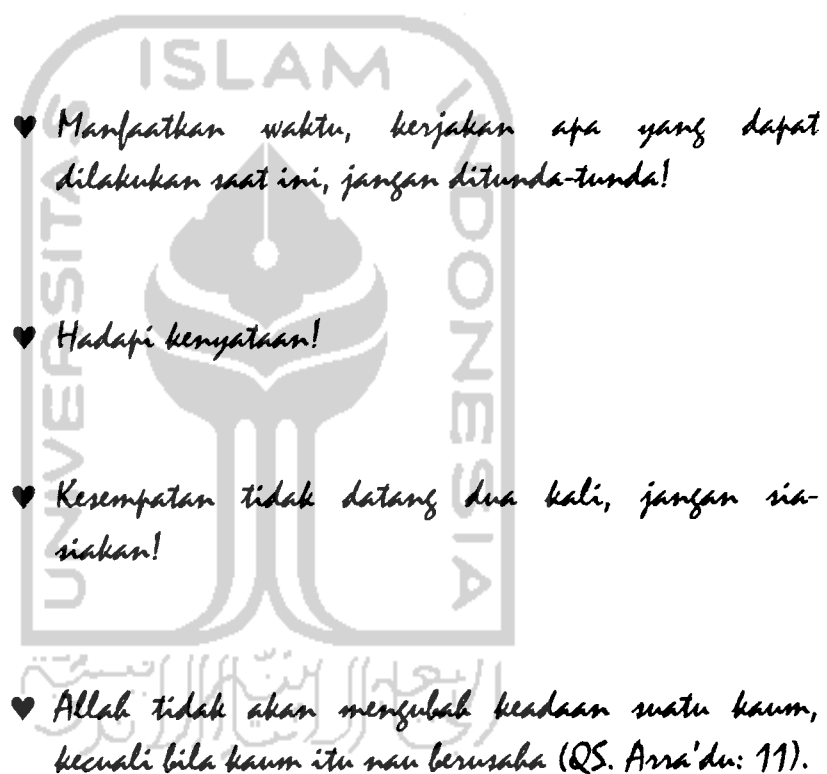 ISLAM
UNIVERSITAS
INDONESIA
♥ Manfaatkan waktu, kerjakan apa yang dapat
dilakukan saat ini, jangan ditunda-tunda!
♥ Hadapi kenyataan!
♥ Kesempatan tidak datang dua kali, jangan sia-
siakan!
♥ Allah tidak akan mengubah keadaan suatu kaum,
kecuali bila kaum itu nau berusaha (QS. Arra'du: 11).